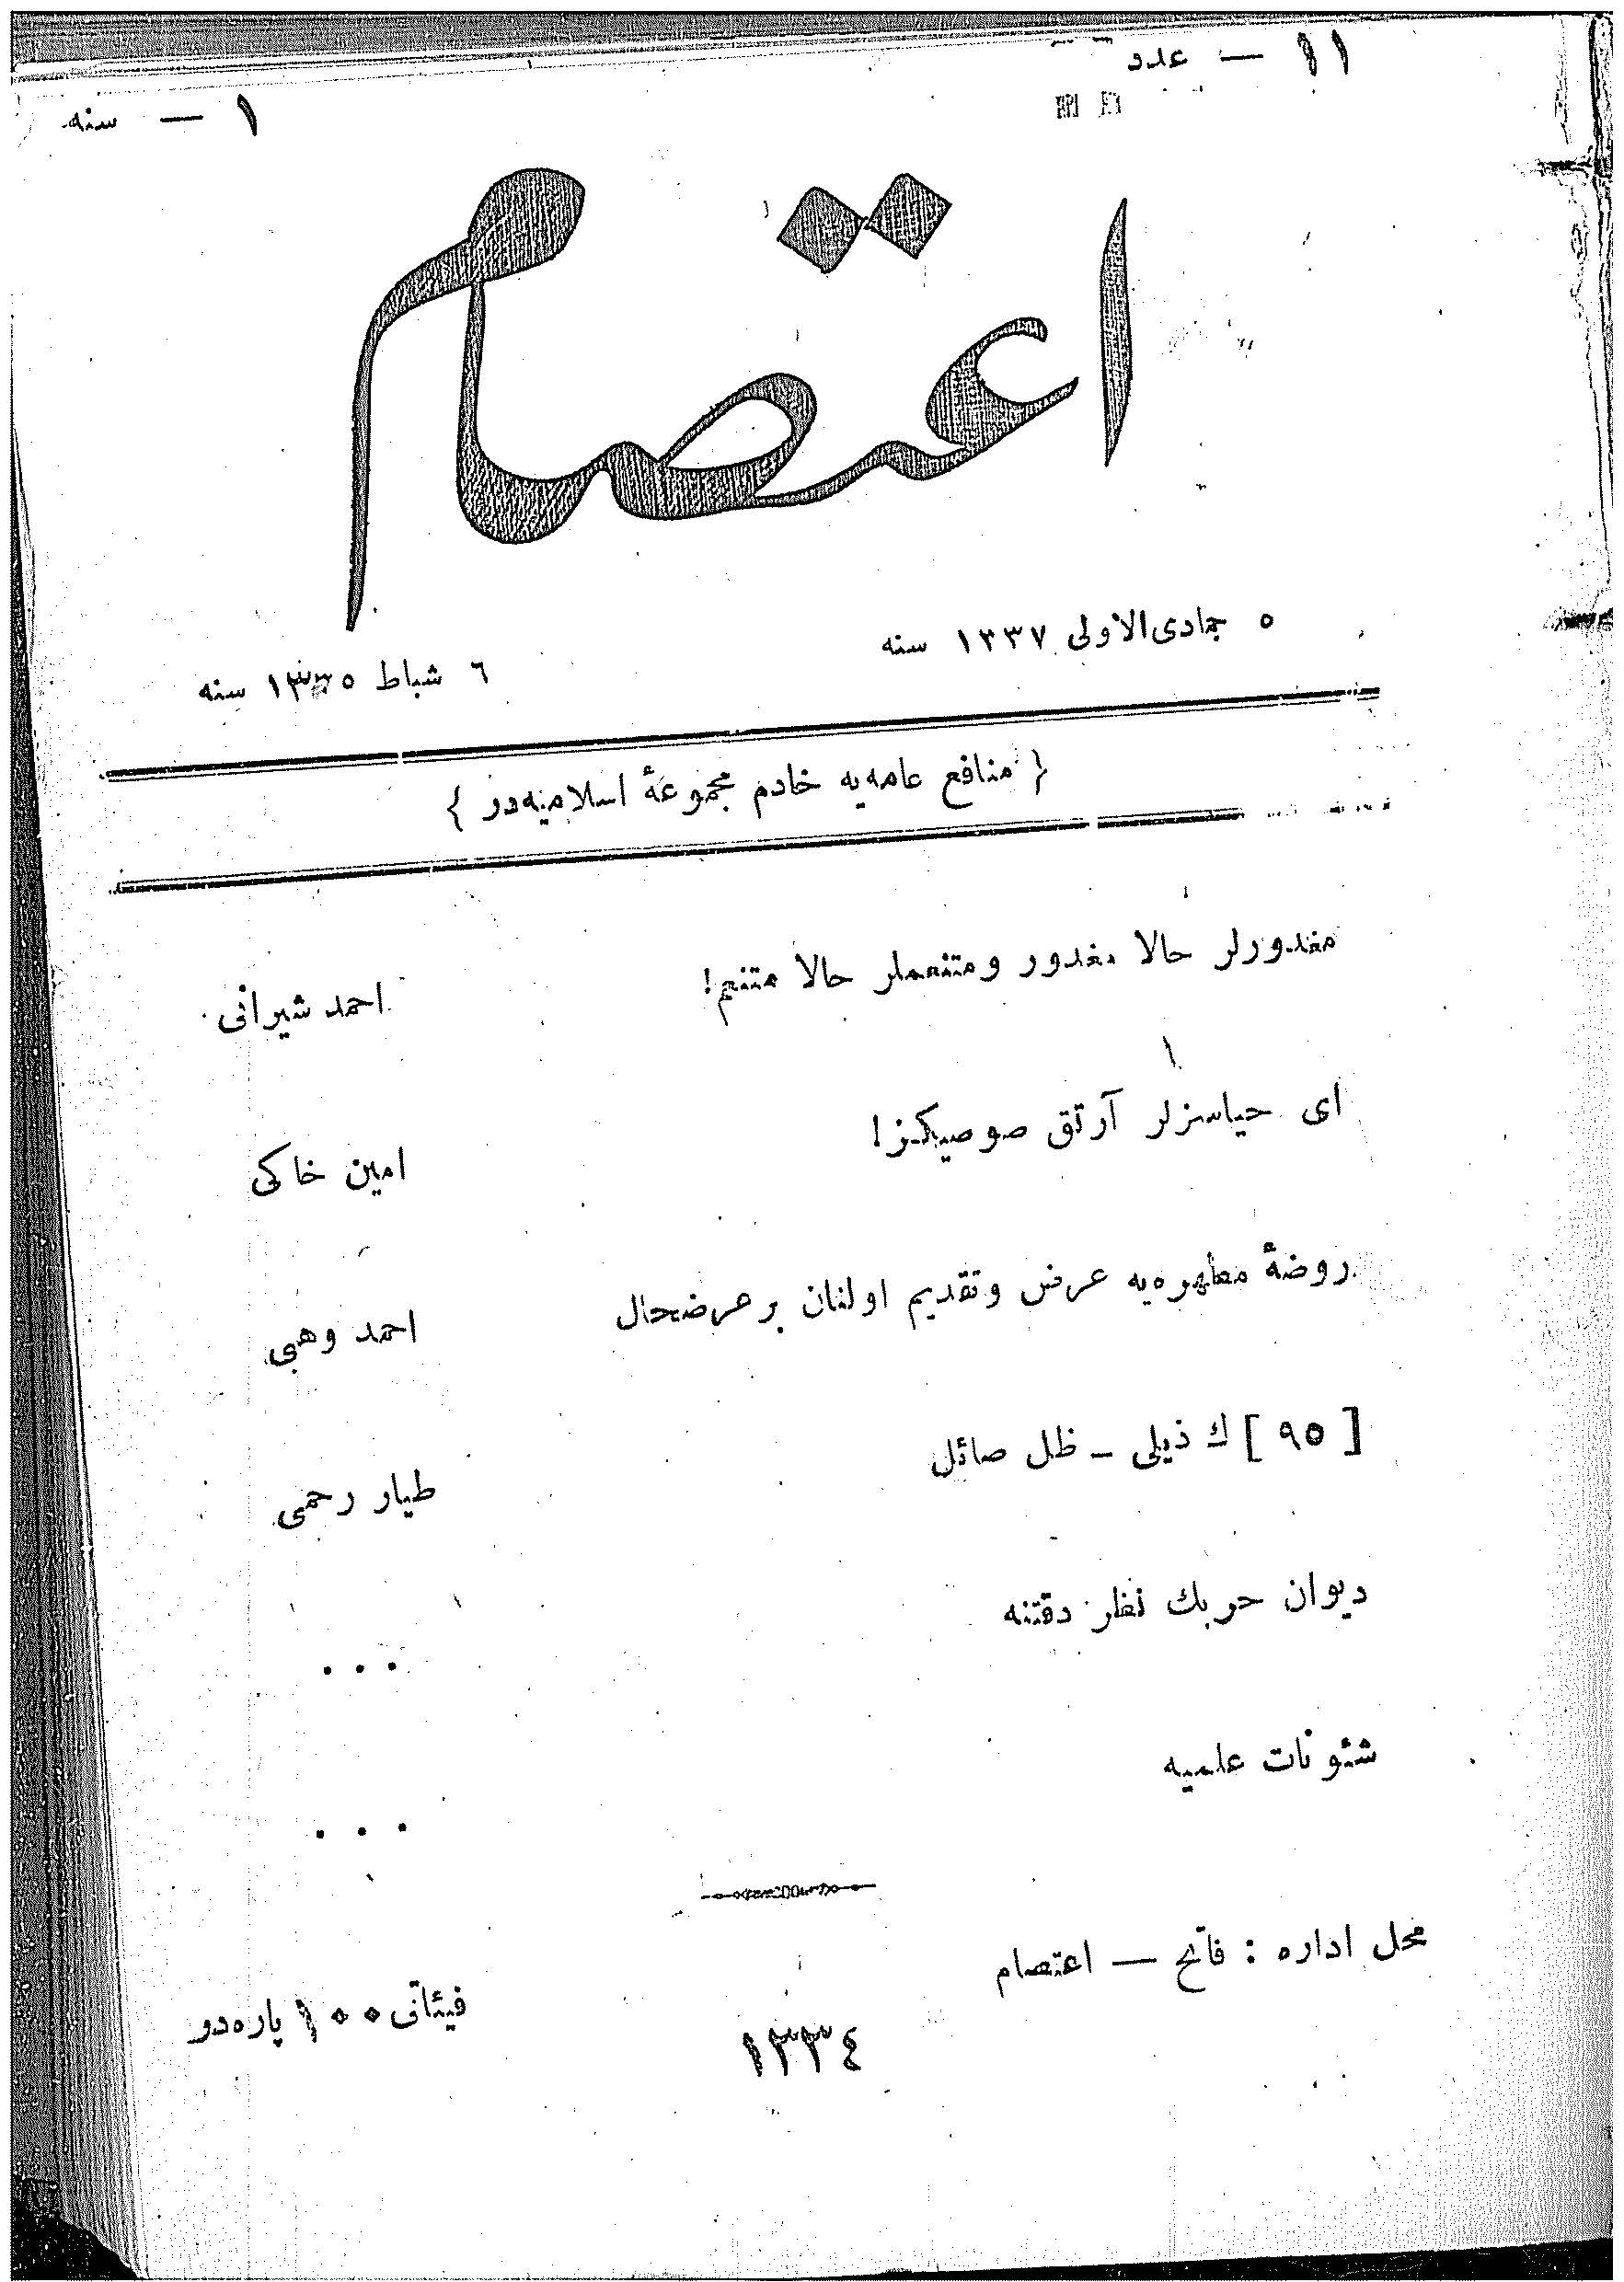 ١١ — عدد
١ — سنه
اعتصام
٥ جمادی‌الاولی ١٣٣٧ سنه
٦ شباط ١٣٣٥ سنه
{ منافع عامه‌یه خادم مجموعهٔ اسلامیه‌در }
مغدورلر حالا مغدور ومتنعملر حالا متنعم!
احمد شیرانی
ای حیاسزلر آرتق صوصیكز!
امین خاكی
روضهٔ مطهره‌یه عرض وتقدیم اولنان بر عرضحال
احمد وهبی
[ ٩٥ ] ك ذیلی – ظل صائل
طیار رحمی
دیوان حربك نظر دقتنه
. . .
شئونات علمیه
. . .
محل اداره : فاتح — اعتصام
فیئاتی ١٠٠ پاره‌در
١٣٣٤